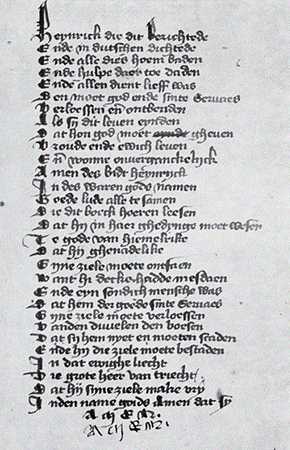 Heynrick die dit berichtede
Ende in dutschen dichtede
Ende alle dies hoem baden
Ende hulpe daer toe daden
Ende allen dient lieff was
Den moet god ende sinte Servaes
Verloessen en ontbenden
Als sy dit leven eynden
Dat hon god moet gheven
Vroude ende ewich leven
En wonne onverganckelijck
Amen des bidt heynrijck
Indes waren gods namen
Goede lude alle te samen
Die dit borck hoeren leesen
Dat hij in haer ghedynge moet wesen
Te gode van hiemelrike
Dat hij ghenadelike
Sijne ziele moete ontfaen
Want hi decke hadde mesdaen
Ende eyn sondich mensche was
Dat hem der goede sinte Servaes
Sijne ziele moete verloessen
Vanden duvelen den boesen
Dat sij hem nyet en moeten scaden
Ende hij die ziele moete bestaden
In dat ewighe liecht
Die grote heer van triecht
Dat hij sijne ziele make vry
Inden name gods Amen dat sy